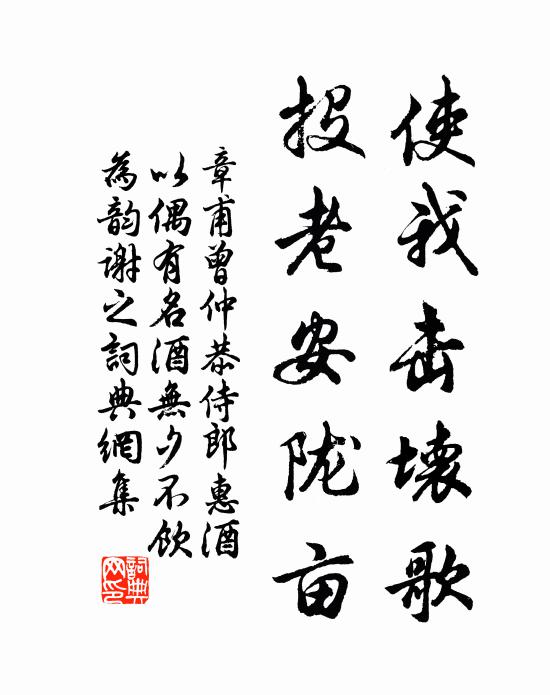 使我击壤歌
投老安陇亩
章甫曾仲恭侍郎惠酒
以偶有名酒無夕不飲
為韵谢之詞典網集
詞典网印